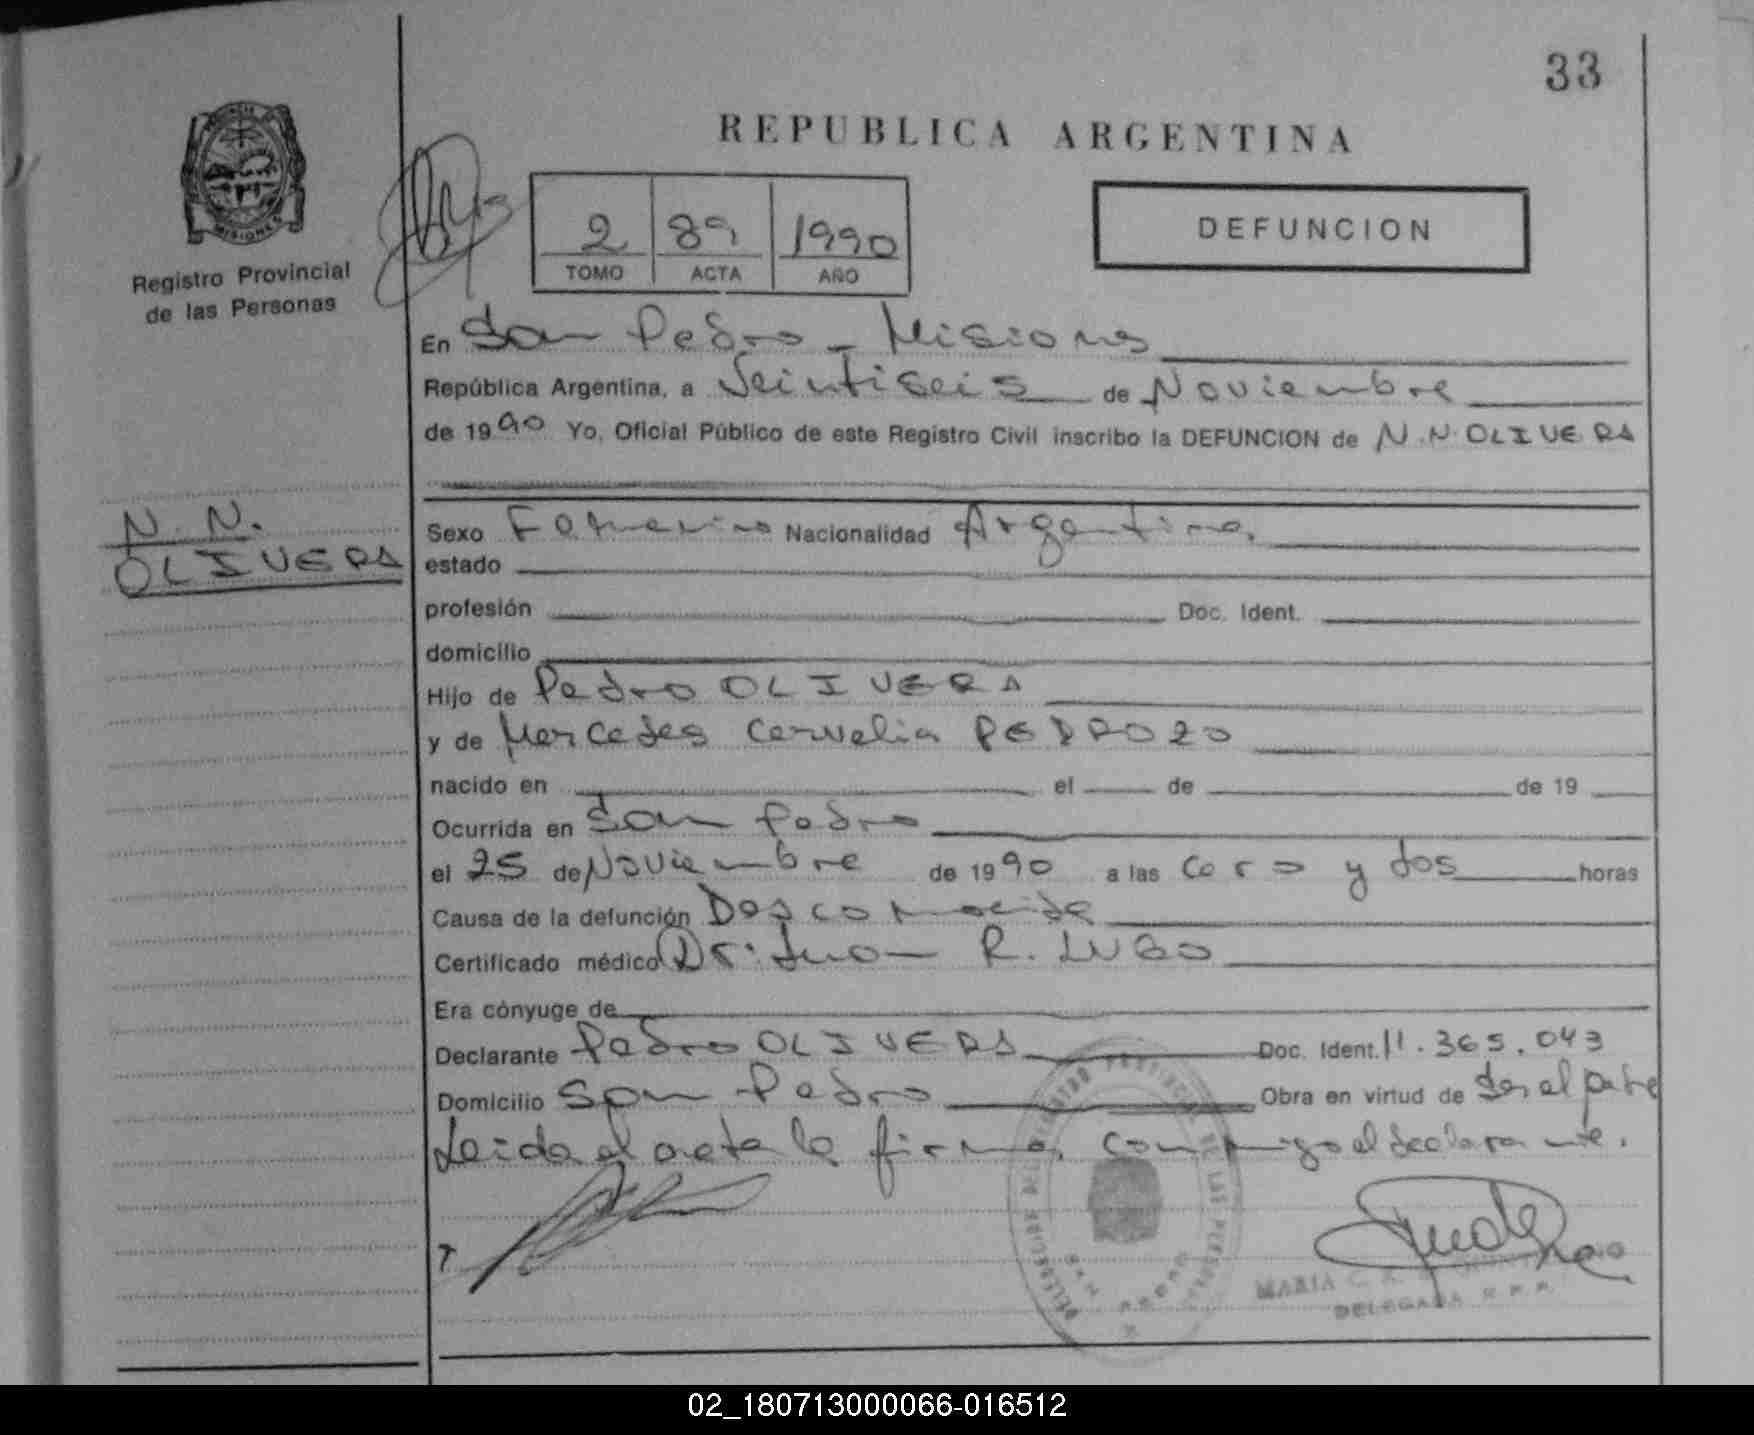 33
REPUBLICA ARGENTINA
2 89 1990
TOMO ACTA AÑO
DEFUNCION
Registro Provincial
de las Personas
En San Pedro - Misiones
República Argentina, a Veintiseis de Noviembre
de 1990 Yo, Oficial Público de este Registro Civil inscribo la DEFUNCION de N.N. OLIVERA
N. N.
OLIVERA
Sexo Femenino Nacionalidad Argentina,
estado
profesión Doc. Ident.
domicilio
Hijo de Pedro OLIVERA
y de Mercedes Cornelia PEDROZO
nacido en el de de 19
Ocurrida en San Pedro
el 25 de Noviembre de 1990 a las Cero y dos horas
Causa de la defunción Desconocida
Certificado médico Dr: Juan R. LUGO
Era cónyuge de
Declarante Pedro OLIVERA Doc. Ident. 11.365.043
Domicilio San Pedro Obra en virtud de Ser el padre
Leida el acta la firma, conmigo el declarante.
T
MARIA C.
DELEGADA R.P.P.
02_180713000066-016512